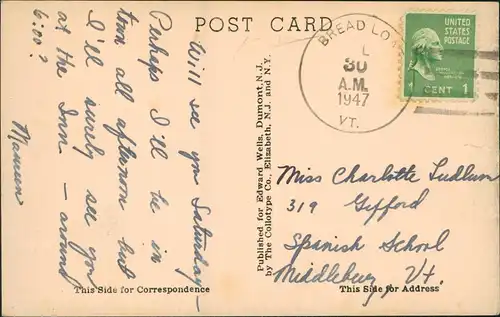 POST CARD
Will see you Saturday –
Perhaps I'll be in
town all afternoon but
I'll surely see you
at the Inn – around
6:00?
Maureen
This Side for Correspondence
Published for Edward Wells, Dumont, N.J.
by The Collotype Co., Elizabeth, N.J. and N.Y.
BREAD LO
30
A.M.
1947
VT.
UNITED
STATES
POSTAGE
1 CENT 1
Miss Charlotte Ludlum
319 Gifford
Spanish School
Middlebury Vt.
This Side for Address